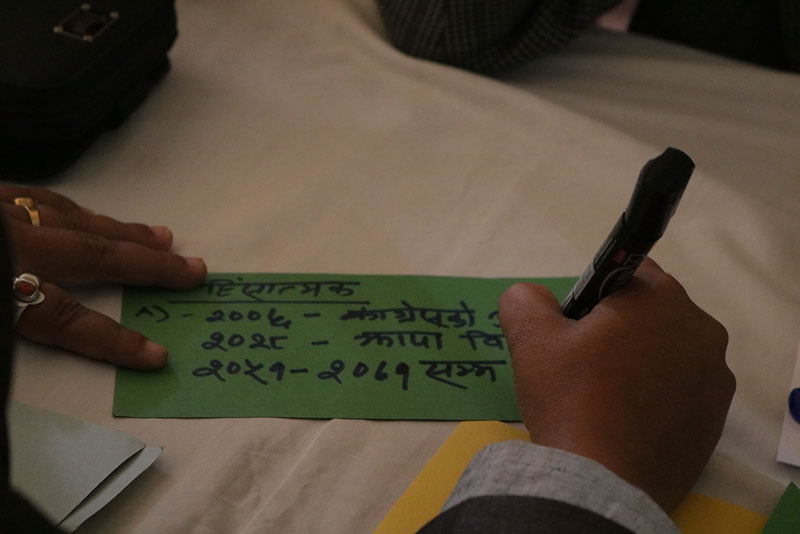 हिंसात्मक
१) - २००७ - काग्रेसको
२०२८ - झापा वि
२०५१ - २०६१ सम्म